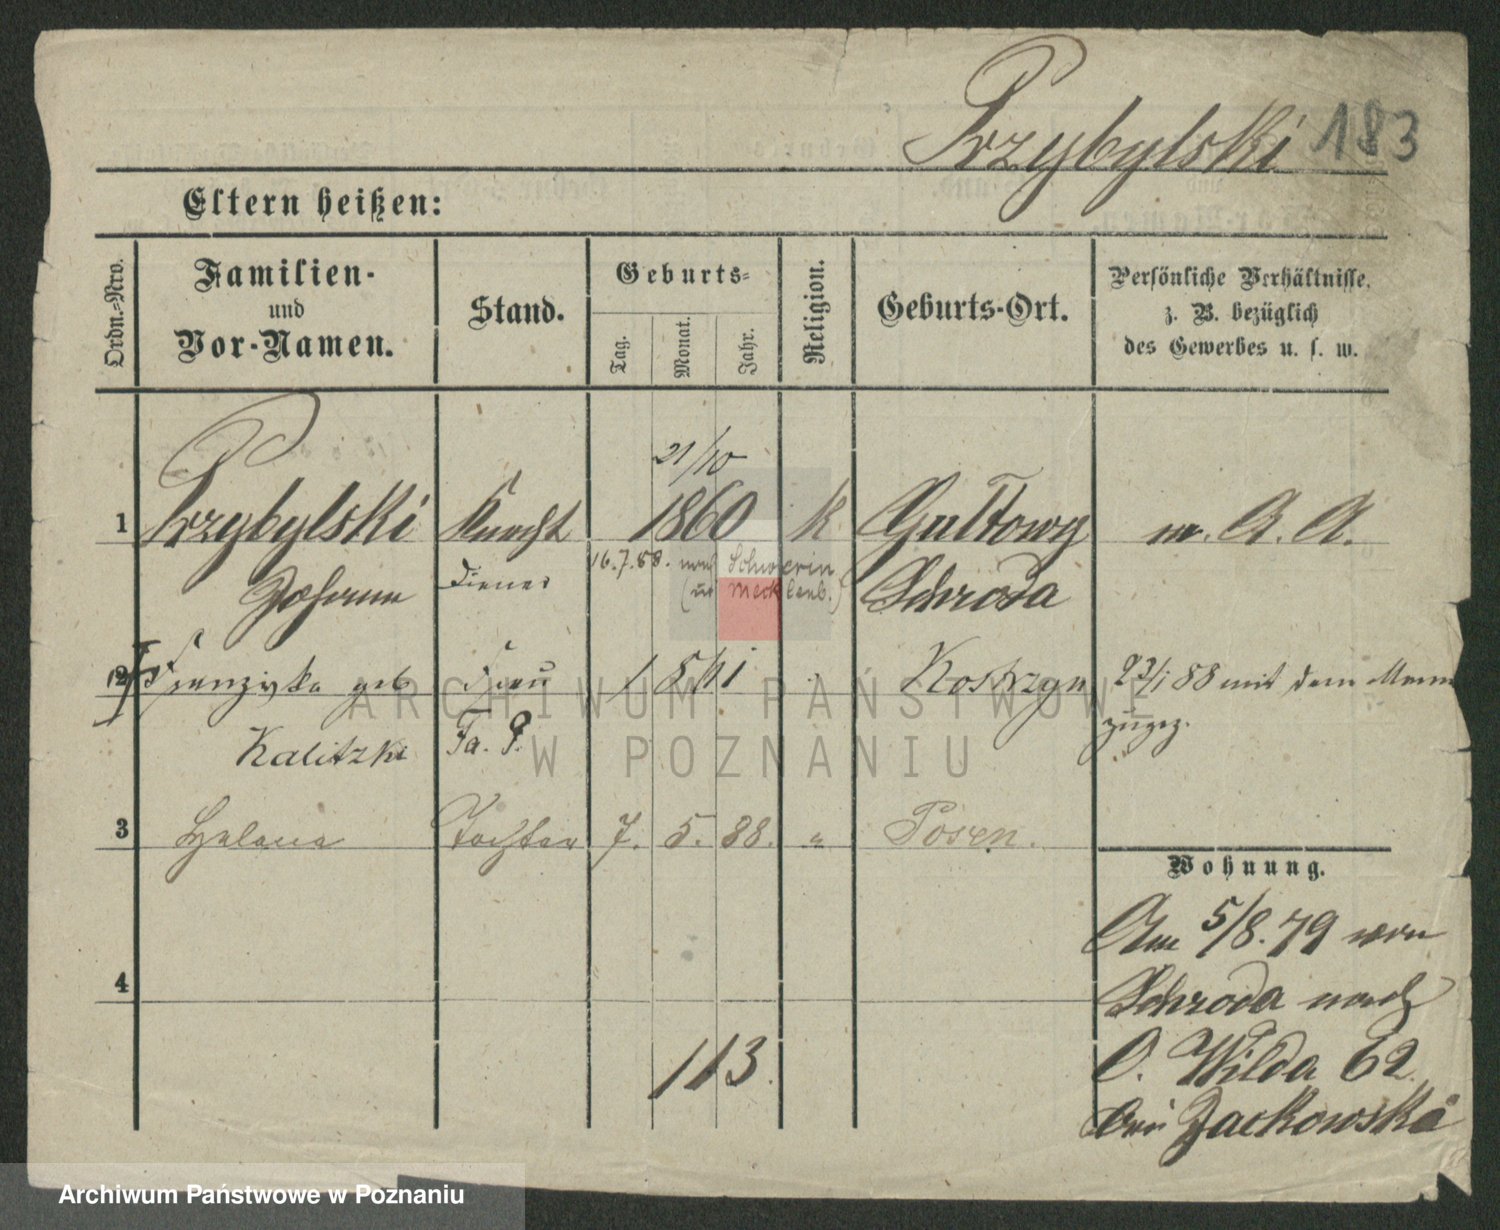 Przybylski 183
Eltern heißen:
Ordn.-Nro.
Familien-
und
Vor-Namen.
Stand.
Geburts-
Tag.
Monat.
Jahr.
Religion.
Geburts-Ort.
Persönliche Verhältnisse,
z. B. bezüglich
des Gewerbes u. s. w.
21/10
1 Przybylski Knecht 1860 K Gultowy m. A. A.
16.7.88. nach Schwerin
Johann Diener (in Mecklenb.) Schroda
2 Franziska geb Frau Kostrzyn 23/1 88 mit dem Mann
zugez.
Kalitzki
3 Helena Tochter 7. 5. 88. " Posen.
Wohnung.
Am 5/8.79 von
4 Schroda nach
113. O. Wilda 62
bei Jackowski
ARCHIWUM PAŃSTWOWE
W POZNANIU
Archiwum Państwowe w Poznaniu